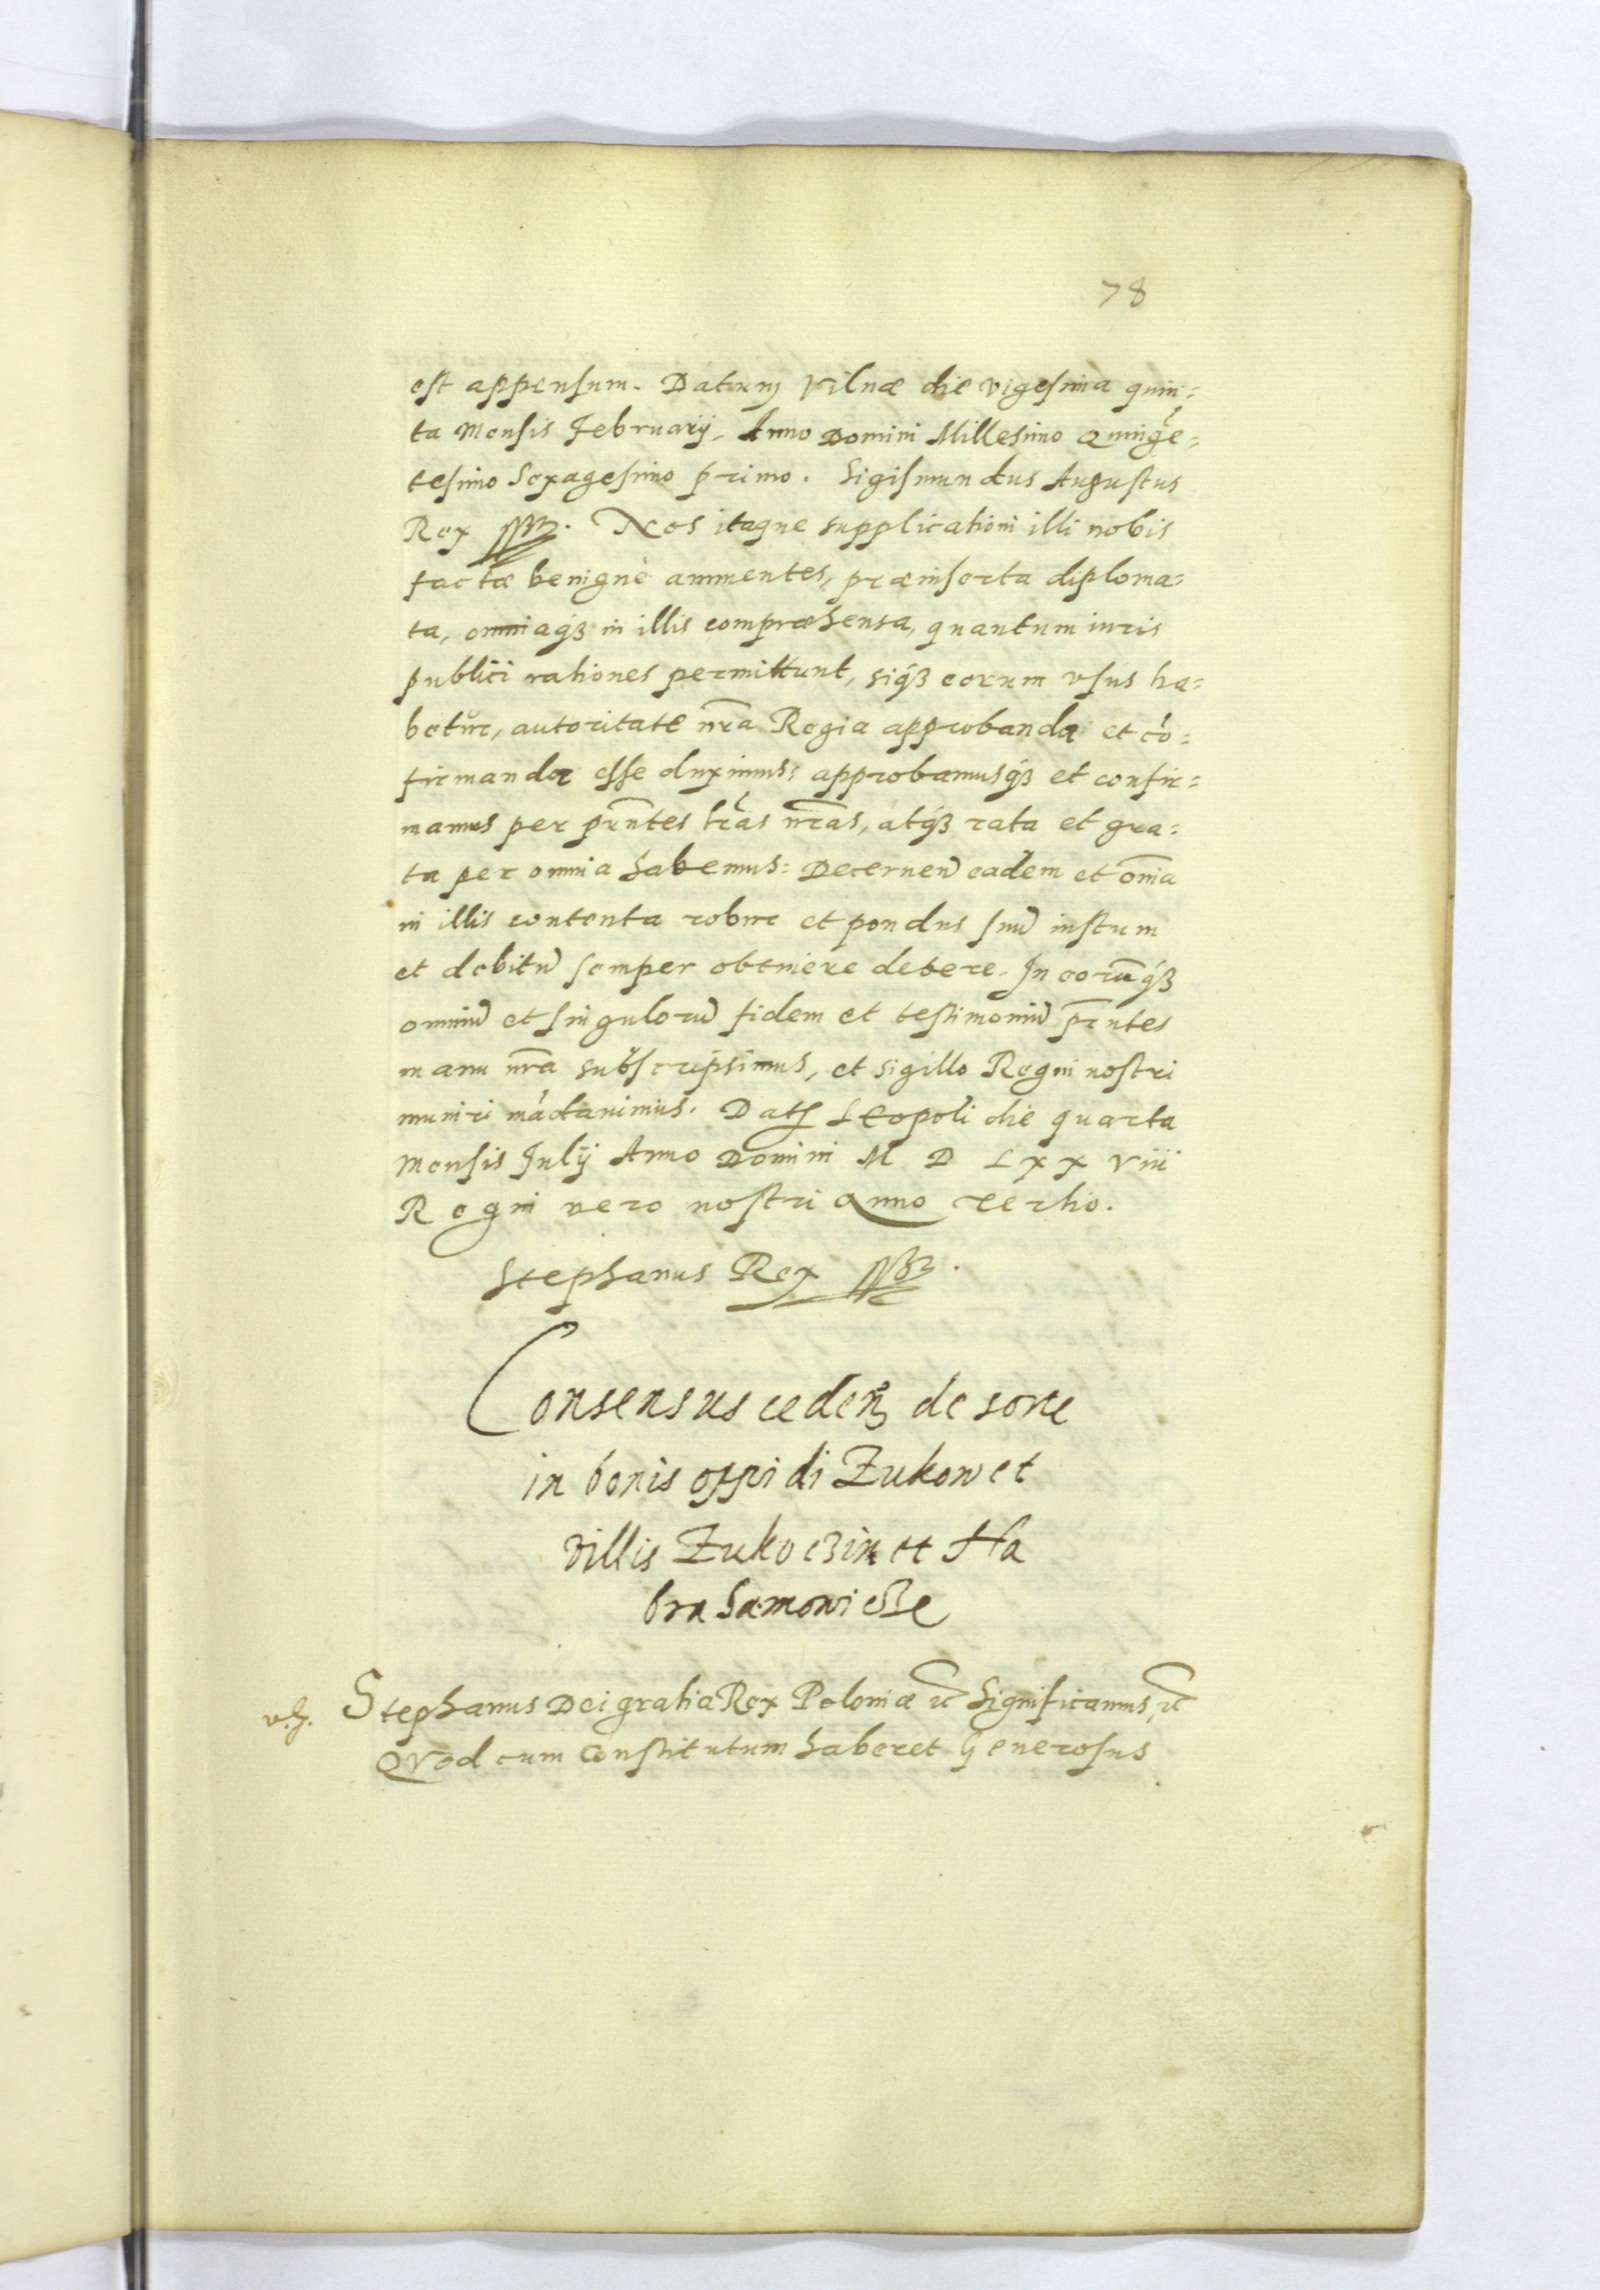 78
est appensum. Datum Vilnæ die vigesima quin=
ta Mensis Februarij. Anno Domini Millesimo Quingẽ=
tesimo Sexagesimo primo. Sigismundus Augustus
Rex. Nos itaque supplicationi illi nobis
factæ benignè annuentes, præinserta diploma=
ta, omniaqꝫ in illis compræhensa, quantum iuris
publici rationes permittunt, siqꝫ eorum vsus ha=
betur, autoritate nr̃a Regia approbanda et cõ=
firmanda esse duximus: approbamusqꝫ et confir=
mamus per pr̃ntes lr̃as nr̃as, atqꝫ rata et gra=
ta per omnia habemus: Decernen̄ eadem et om̃ia
in illis contenta robur et pondus suũ iustum
et debitũ semper obtinere debere. In eorũqꝫ
omniũ et singulorũ fidem et testimoniũ pr̃ntes
manu nr̃a subscripsimus, et sigillo Regni nostri
muniri mãdauimus. Datꝭ Leopoli die quarta
Mensis Julij Anno Domini M D L x x viii
Regni vero nostri Anno tertio.
Stephanus Rex
Consensus ceden̄ de sorte
in bonis oppidi Zukow et
villis Zukoczin et Ha
brahamowicze
v.z. Stephanus Dei gratia Rex Poloniæ ꝛc̃ Significamus, ꝛc̃
Qvod cum Constitutum haberet Generosus